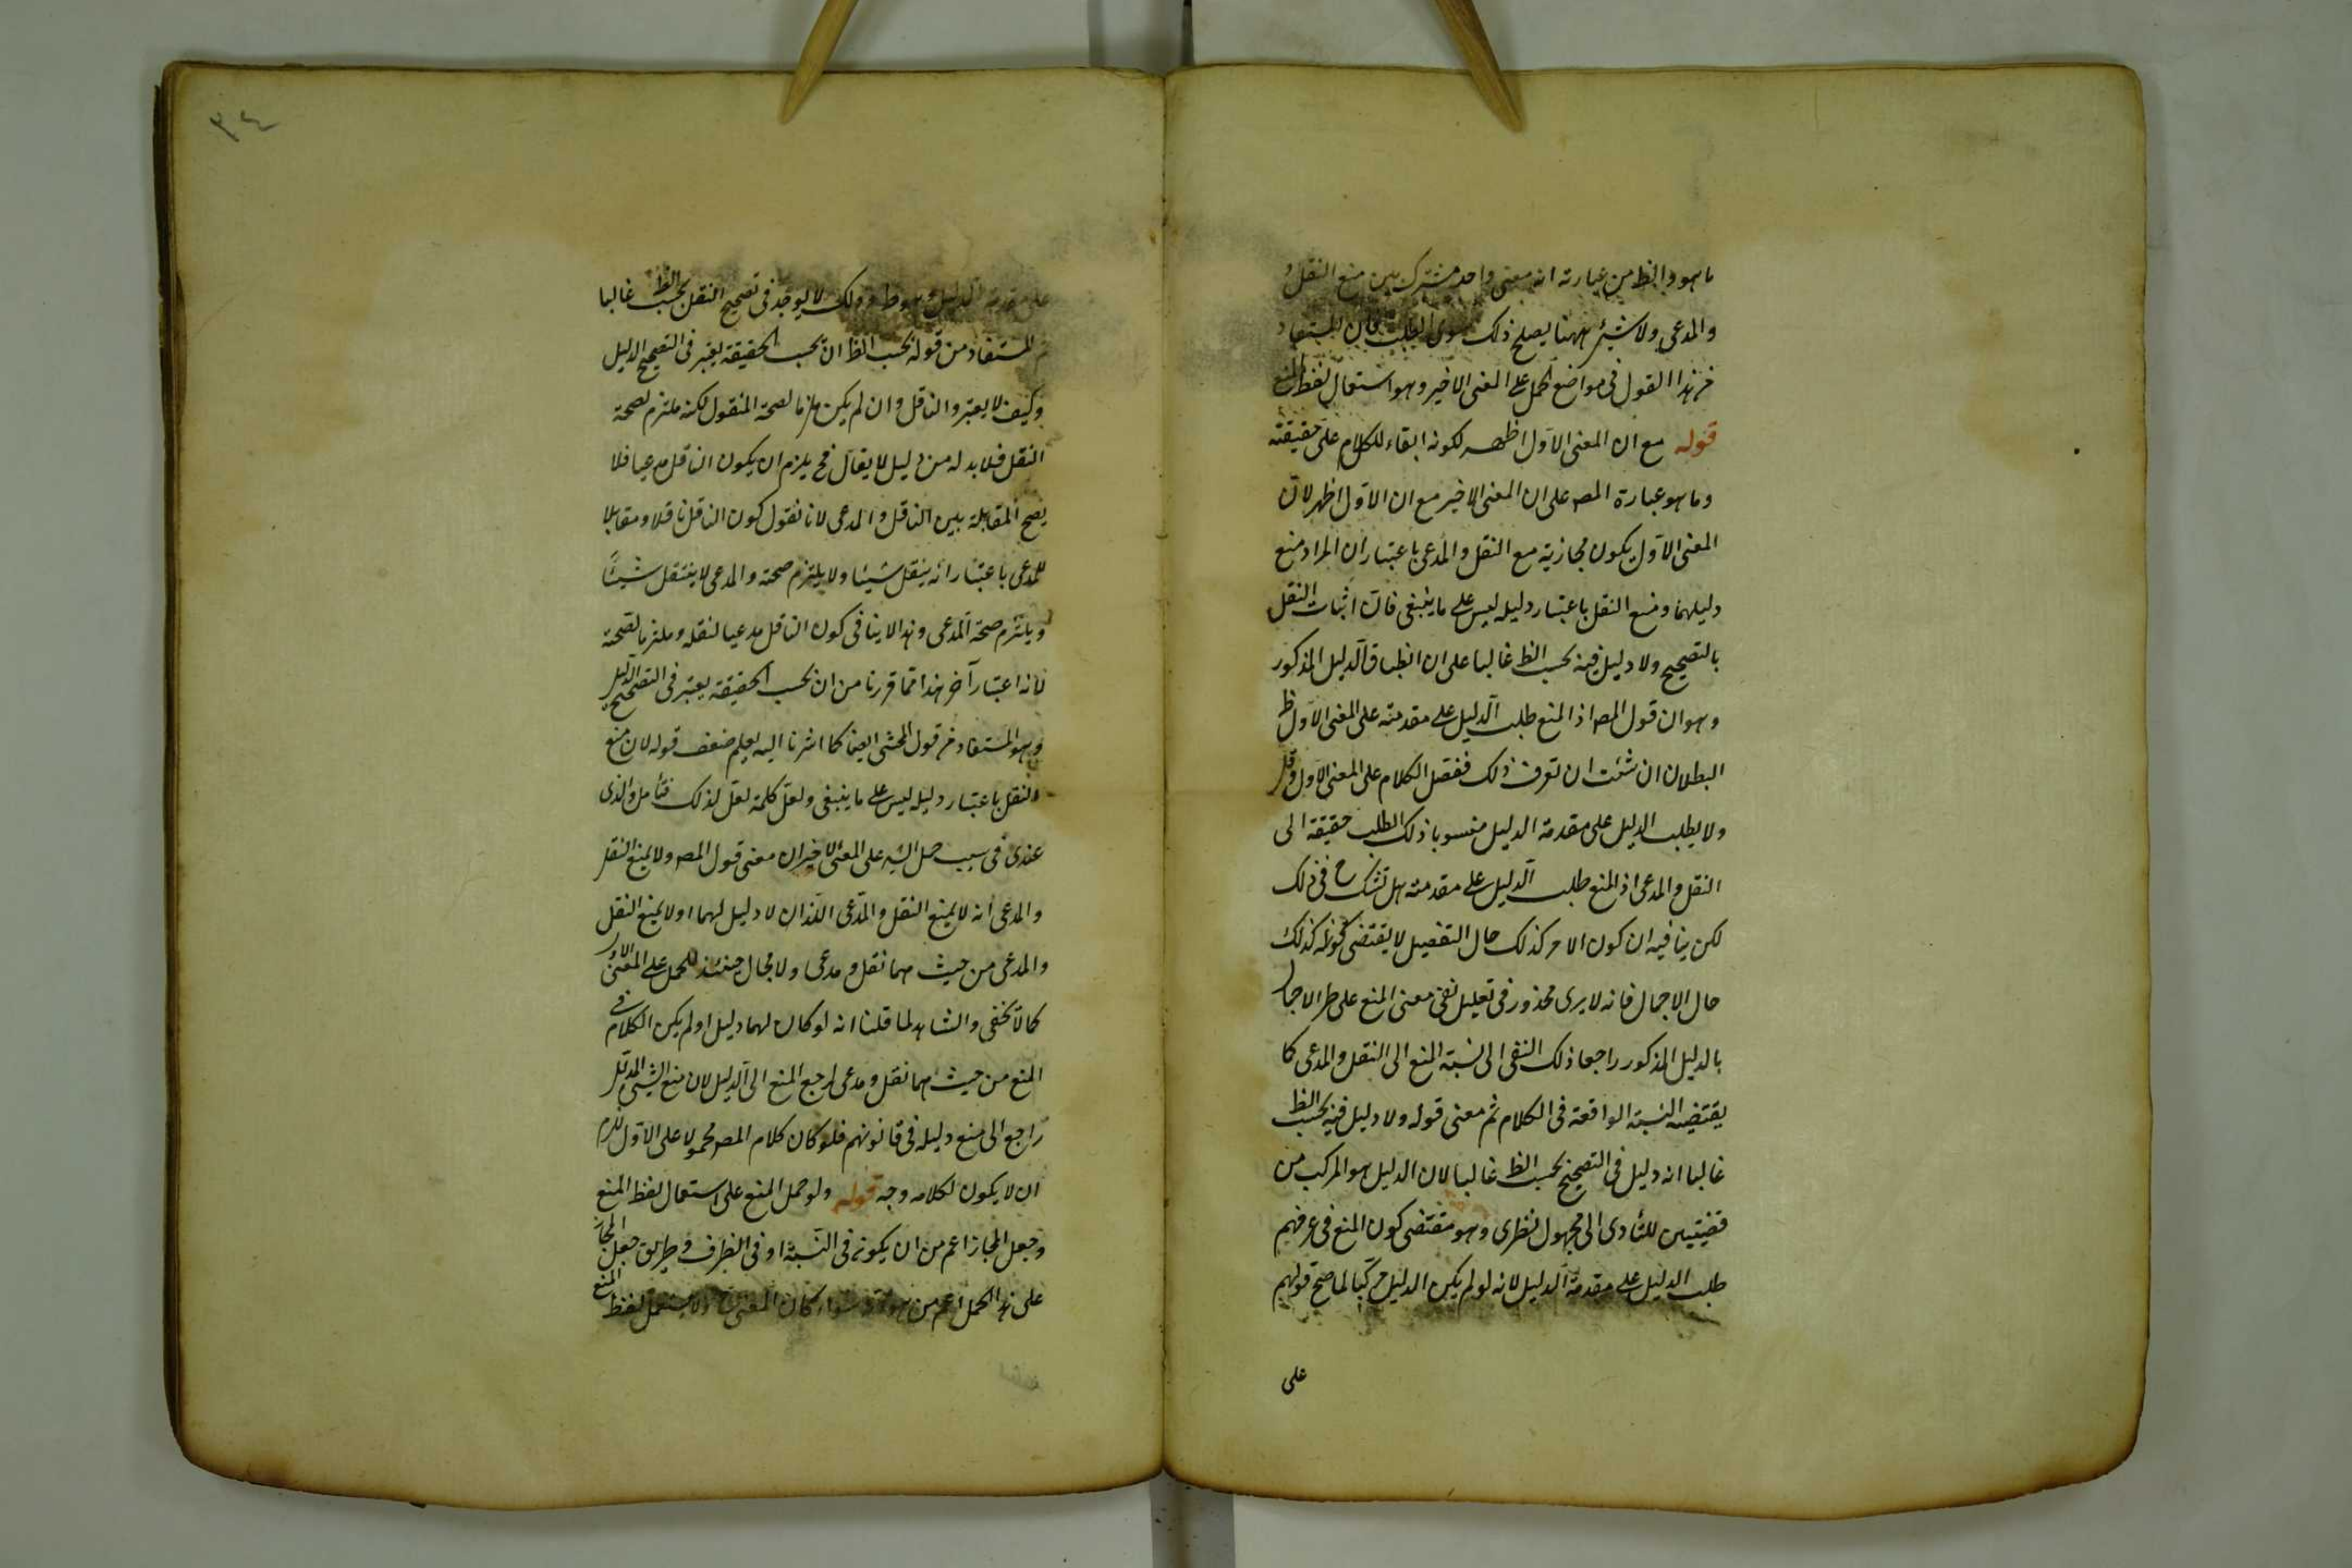 ما هو والظ من عبارته انه معنى واحد مشترك بين منع النقل و
والمدعى ولا شيئ ههنا يصلح ذلك سوى الطلب فان المستفاد
من هذا القول فى مواضع الحمل على المعنى الاخير وهو استعمال لفظ المنع
قوله مع ان المعنى الاول اظهر لكونه ابقاء للكلام على حقيقته
وما هو عبارة المص على ان المعنى الاخير مع ان الاول اظهر لان
المعنى الاول يكون مجازية مع النقل والمدعى باعتبار ان المراد منع
دليلهما ومنع النقل باعتبار دليله ليس على ما ينبغى فان اثبات النقل
بالتصحيح ولا دليل فيه بحسب الظ غالبا على ان انطباق الدليل المذكور
وهو ان قول المص اذ المنع طلب الدليل على مقدمته على المعنى الاول ظ
البطلان ان شئت ان تعرف ذلك ففصل الكلام على المعنى الاول وقل
ولا يطلب الدليل على مقدمة الدليل منسوبا ذلك الطلب حقيقة الى
النقل والمدعى اذ المنع طلب الدليل على مقدمته هل تشك ح فى ذلك
لكن ينافيه ان كون الامر كذلك حال التفصيل لا يقتضى كونه كذلك
حال الاجمال فانه لا يرى محذور فى تعليل نفى معنى المنع على طر الاجمال
بالدليل المذكور راجعا ذلك النفى الى نسبة المنع الى النقل والمدعى كا
يقتضيه النسبة الواقعة فى الكلام ثم معنى قوله ولا دليل فيه بحسب الظ
غالبا انه دليل فى التصحيح بحسب الظ غالبا لان الدليل هو المركب من
قضيتين للتأدى الى مجهول نظرى وهو مقتضى كون المنع فى عرفهم
طلب الدليل على مقدمة الدليل لانه لو لم يكن الدليل مركبا لما صح قولهم
على
٣٤
على مقدمة الدليل وهو ظ وذلك لا يوجد فى تصحيح النقل بحسب الظ غالبا
المستفاد من قوله بحسب الظ ان بحسب الحقيقة يعتبر فى التصحيح الدليل
وكيف لا يعتبر والناقل وان لم يكن ملزما لصحة المنقول لكنه ملتزم لصحة
النقل فلا بد له من دليل لا يقال فح يلزم ان يكون الناقل مدعيا فلا
يصح المقابلة بين الناقل والمدعى لانا نقول كون الناقل ناقلا ومقابلا
للمدعى باعتبار انه ينقل شيئا ولا يلتزم صحته والمدعى لا ينتقل شيئا
ويلتزم صحة المدعى وهذا لا ينافى كون الناقل مدعيا لنقله وملتزما لصحته
لانه اعتبار آخر هذا مما قررنا من ان بحسب الحقيقة يعتبر فى التصحيح الدليل
وهو المستفاد من قول المحشى ايضا كما اشرنا اليه يعلم ضعف قوله لان منع
النقل باعتبار دليله ليس على ما ينبغى ولعل كلمة لعل لذلك فتأمل والذى
عندى فى سبب حمل الش على المعنى الاخير ان معنى قول المص ولا يمنع النقل
والمدعى انه لا يمنع النقل والمدعى اللذان لا دليل لهما او لا يمنع النقل
والمدعى من حيث هما نقل ومدعى ولا مجال حينئذ للحمل على المعنى الاول
كما لا يخفى والشاهد لما قلنا انه لو كان لهما دليل او لم يكن الكلام فى
المنع من حيث هما نقل ومدعى لرجع المنع الى الدليل لان منع الشيئ المدلل
راجع الى منع دليله فى قانونهم فلو كان كلام المص محمولا على الاول لزم
ان لا يكون لكلامه وجه قوله ولو حمل المنع على استعمال لفظ المنع
وجعل المجاز اعم من ان يكون فى النسبة او فى الطرف وطريق جعل المجاز
على هذا الحمل اعم من سواء كان المعنى ولا يستعمل لفظ المنع